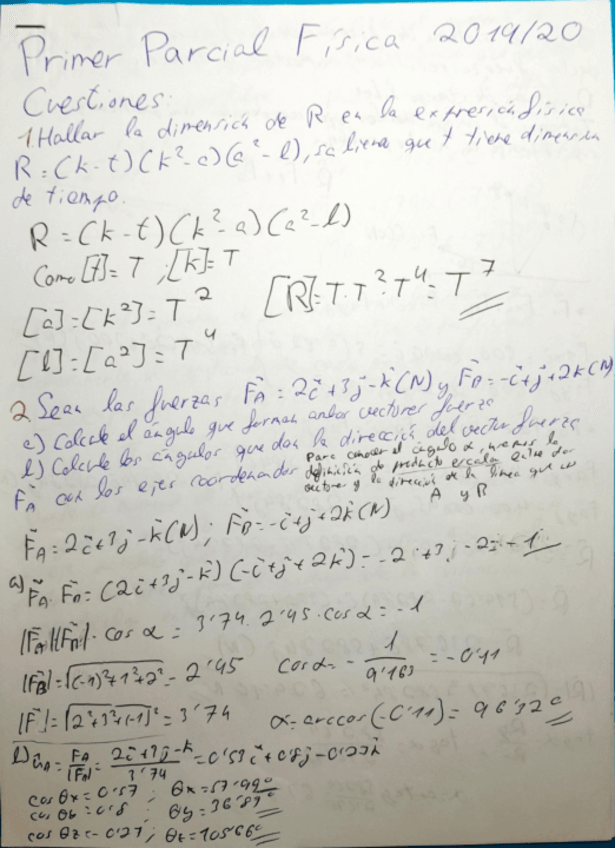 Primer Parcial Física 2019/20
Cuestiones:
1. Hallar la dimensión de R en la expresión física
R = (k - t)(k² - a)(a² - l), se tiene que t tiene dimensión
de tiempo.
R = (k - t)(k² - a)(a² - l)
Como [t] = T ; [k] = T
[a] = [k²] = T²
[R] = T·T²·T⁴ = T⁷
[l] = [a²] = T⁴
2. Sean las fuerzas F⃗A = 2i⃗ + 3j⃗ - k⃗ (N) y F⃗B = -i⃗ + j⃗ + 2k⃗ (N)
a) Calcule el ángulo que forman ambos vectores fuerza
b) Calcule los ángulos que dan la dirección del vector fuerza
F⃗A con los ejes coordenados
Para conocer el ángulo α, usamos la
definición de producto escalar entre dos
vectores y la dirección de la línea que
A y B
F⃗A = 2i⃗ + 3j⃗ - k⃗ (N) ; F⃗B = -i⃗ + j⃗ + 2k⃗ (N)
a) F⃗A · F⃗B = (2i⃗ + 3j⃗ - k⃗)(-i⃗ + j⃗ + 2k⃗) = -2 + 3 - 2 = -1
|F⃗A||F⃗B| · cos α = 3'74 · 2'45 · cos α = -1
|F⃗B| = √(-1)² + 1² + 2² = 2'45 cos α = - 1/9'163 = -0'11
|F⃗| = √2² + 3² + (-1)² = 3'74 α = arccos(-0'11) = 96'32°
b) u⃗A = F⃗A/|F⃗A| = 2i⃗ + 3j⃗ - k⃗/3'74 = 0'53i⃗ + 0'8j⃗ - 0'27k⃗
cos θx = 0'57 ; θx = 57'99°
cos θy = 0'8 ; θy = 36'87°
cos θz = -0'27 ; θz = 105'66°